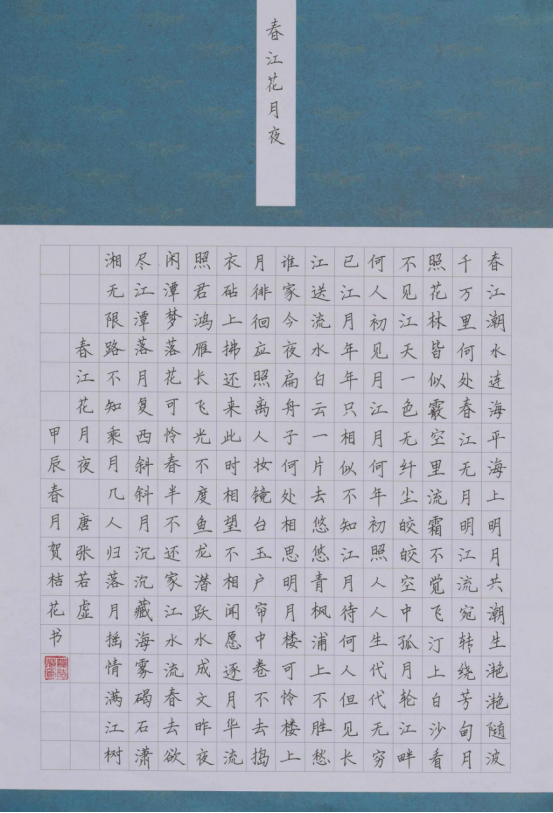 春江花月夜
春江潮水连海平海上明月共潮生滟滟随波
千万里何处春江无月明江流宛转绕芳甸月
照花林皆似霰空里流霜不觉飞汀上白沙看
不见江天一色无纤尘皎皎空中孤月轮江畔
何人初见月江月何年初照人人生代代无穷
已江月年年只相似不知江月待何人但见长
江送流水白云一片去悠悠青枫浦上不胜愁
谁家今夜扁舟子何处相思明月楼可怜楼上
月徘徊应照离人妆镜台玉户帘中卷不去捣
衣砧上拂还来此时相望不相闻愿逐月华流
照君鸿雁长飞光不度鱼龙潜跃水成文昨夜
闲潭梦落花可怜春半不还家江水流春去欲
尽江潭落月复西斜斜月沉沉藏海雾碣石潇
湘无限路不知乘月几人归落月摇情满江树
春江花月夜 唐张若虚
甲辰春月贺桔花书